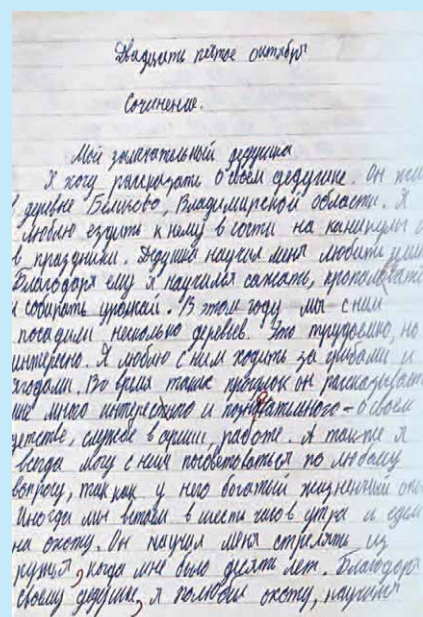 Двадцать пятое октября
Сочинение.
Мой замечательный дедушка
Я хочу рассказать о своём дедушке. Он жи
деревне Бельково, Владимирской области. Я
люблю ездить к нему в гости на каникулы и
в праздники. Дедушка научил меня любить
Благодаря ему я научился сажать, пропол
и собирать урожай. В этом году мы с ним
посадили несколько деревьев. Это трудоёмко, но
интересно. Я люблю с ним ходить за грибами и
ягодами. Во время таких прогулок он рассказывает
мне много интересного и познавательного - о своём
детстве, службе в армии, работе. А также я
всегда могу с ним посоветоваться по любому
вопросу, так как у него богатый жизненный оп
Иногда мы встаём в шесть часов утра и едем
на охоту. Он научил меня стрелять из
ружья, когда мне было десять лет. Благодаря
своему дедушке, я полюбил охоту, научился